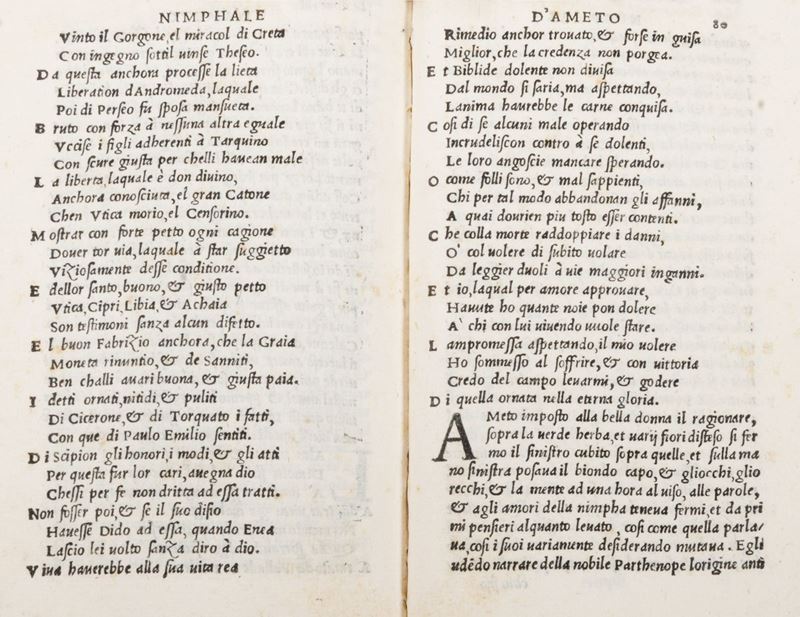 NIMPHALE
Vinto il Gorgone, el miracol di Creta
Con ingegno ſottil uinſe Theſeo.
Da queſta anchora proceſſe la lieta
Liberation dAndromeda, laquale
Poi di Perſeo fu ſpoſa manſueta.
Bruto con forza à neſſuna altra eguale
Vcciſe i figli adherenti à Tarquino
Con ſcure giuſta per chelli hauean male
La liberta, laquale è don diuino,
Anchora conoſciuta, el gran Catone
Chen Vtica morio, el Cenſorino.
Moſtrar con forte petto ogni cagione
Douer tor uia, laquale à ſtar ſuggietto
Vitioſamente deſſe conditione.
E dellor ſanto, buono, & giuſto petto
Vtica, Cipri, Libia, & Achaia
Son teſtimoni ſanza alcun difetto.
El buon Fabritio anchora, che la Graia
Moneta rinuntio, & de Sanniti,
Ben challi auari buona, & giuſta paia.
I detti ornati, nitidi, & puliti
Di Cicerone, & di Torquato i fatti,
Con que di Paulo Emilio ſentiti.
Di Scipion gli honori, i modi, & gli atti
Per queſta fur lor cari, auegna dio
Cheſſi per ſe non dritta ad eſſa tratti.
Non foſſer poi, & ſe il ſuo diſio
Haueſſe Dido ad eſſa, quando Enea
Laſcio lei uolto ſanza diro à dio.
Viua hauerebbe alla ſua uita rea
D'AMETO
80
Rimedio anchor trouato, & forſe in guiſa
Miglior, che la credenza non porgea.
Et Biblide dolente non diuiſa
Dal mondo ſi ſaria, ma aſpettando,
Lanima haurebbe le carne conquiſa.
Coſi di ſe alcuni male operando
Incrudeliſcon contro à ſe dolenti,
Le loro angoſcie mancare ſperando.
O come folli ſono, & mal ſappienti,
Chi per tal modo abbandonan gli affanni,
A quai dourien piu toſto eſſer contenti.
Che colla morte raddoppiare i danni,
O' col uolere di ſubito uolare
Da leggier duoli à uie maggiori inganni.
Et io, laqual per amore approuare,
Hauute ho quante noie pon dolere
A' chi con lui uiuendo uuole ſtare.
Lampromeſſa aſpettando, il mio uolere
Ho ſommeſſo al ſoffrire, & con uittoria
Credo del campo leuarmi, & godere
Di quella ornata nella eterna gloria.
AMeto impoſto alla bella donna il ragionare,
ſopra la uerde herba, et uarij fiori diſteſo ſi fer
mo il ſiniſtro cubito ſopra quelle, et ſulla ma
no ſiniſtra poſaua il biondo capo, & gliocchi, glio
recchi, & la mente ad una hora al uiſo, alle parole,
& agli amori della nimpha teneua fermi, et da pri
mi penſieri alquanto leuato, coſi come quella parla/
ua, coſi i ſuoi uariamente deſiderando mutaua. Egli
udēdo narrare della nobile Parthenope lorigine anti